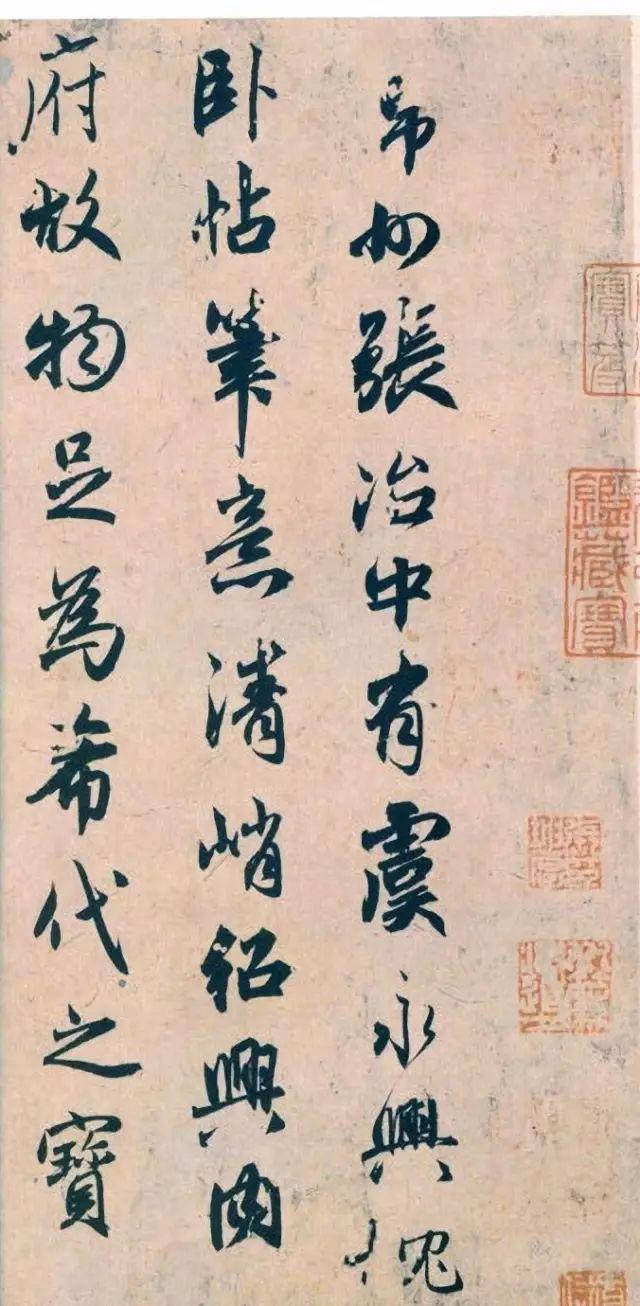 州張治中有虞永興
卧帖筆意清峭紹興内
府故物足為希代之寶